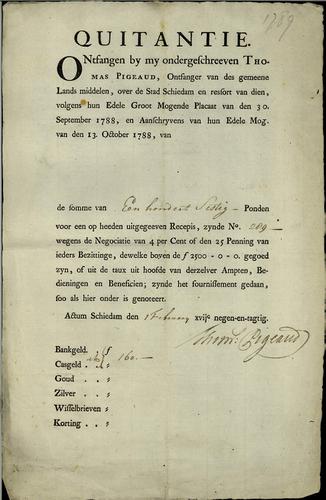 1789
QUITANTIE.
ONtfangen by my ondergeschreeven THO-
MAS PIGEAUD, Ontfanger van des gemeene
Lands middelen, over de Stad Schiedam en ressort van dien,
volgens hun Edele Groot Mogende Placaat van den 30.
September 1788, en Aanschryvens van hun Edele Mog.
van den 13. October 1788, van
de somme van Een hondert Sestig — Ponden
voor een op heeden uitgegeeven Recepis, zynde No. 289
wegens de Negociatie van 4 per Cent of den 25 Penning van
ieders Bezittinge, dewelke boven de f 2500 - 0 - 0. gegoed
zyn, of uit de taux uit hoofde van derzelver Ampten, Be-
dieningen en Beneficien; zynde het fournissement gedaan,
soo als hier onder is genoteert.
Actum Schiedam den 1 February xvijc negen-en-tagtig.
Thoms. Pigeaud
Bankgeld. f
Casgeld . . 160.—
Goud . .
Zilver . .
Wisselbrieven
Korting . .